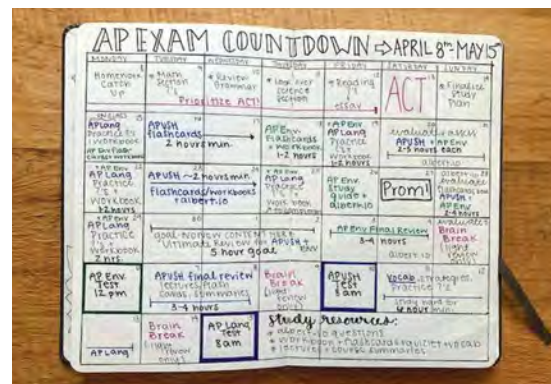 AP EXAM COUNTDOWN ⇒ APRIL 8TH-MAY 15
MONDAY TUESDAY WEDNESDAY THURSDAY FRIDAY SATURDAY SUNDAY
Homework Catch Up
Math Section
Review Grammar
Look over science section
Reading
essay
Prioritize ACT!
ACT
Finalize Study Plan
AP Lang
Practice
+ Workbook
APUSH
flashcards
2 hours min
AP Env
Flashcards
+ Workbook
1-2 hours
+AP Env
AP Lang
Practice
Workbook
1-2 hours
APUSH + AP Env
2-3 hours each
albert.io
+ AP Env
AP Lang
Practice
Workbook
1-2 hours
APUSH ~ 2 hours min
flashcards/workbooks
+ albert.io
+ AP Env
AP Lang
Practice
AP Env
Study
guide +
albert.io
Prom!
albert.io
evaluate
APUSH +
AP Env
+ AP Env
AP Lang
Practice
+ Workbook
2 hrs
goal: NO NEW CONTENT HERE
Ultimate Review for APUSH + ENV
5 hour goal
AP Env Final Review
3-4 hours
albert.io
Brain
Break
(light
review
only)
AP Env
Test
12 pm
APUSH final review
lectures, flash
cards, summaries
3-4 hours
Brain
Break
(light
review
only)
APUSH
Test
8am
vocab, strategies,
Practice
study hard for
AP Lang
Brain
Break
(light
review
only)
AP Lang
Test
8am
Study resources:
* albert.io questions
* workbook + flashcards + quizlet + vocab
* lectures + course summaries